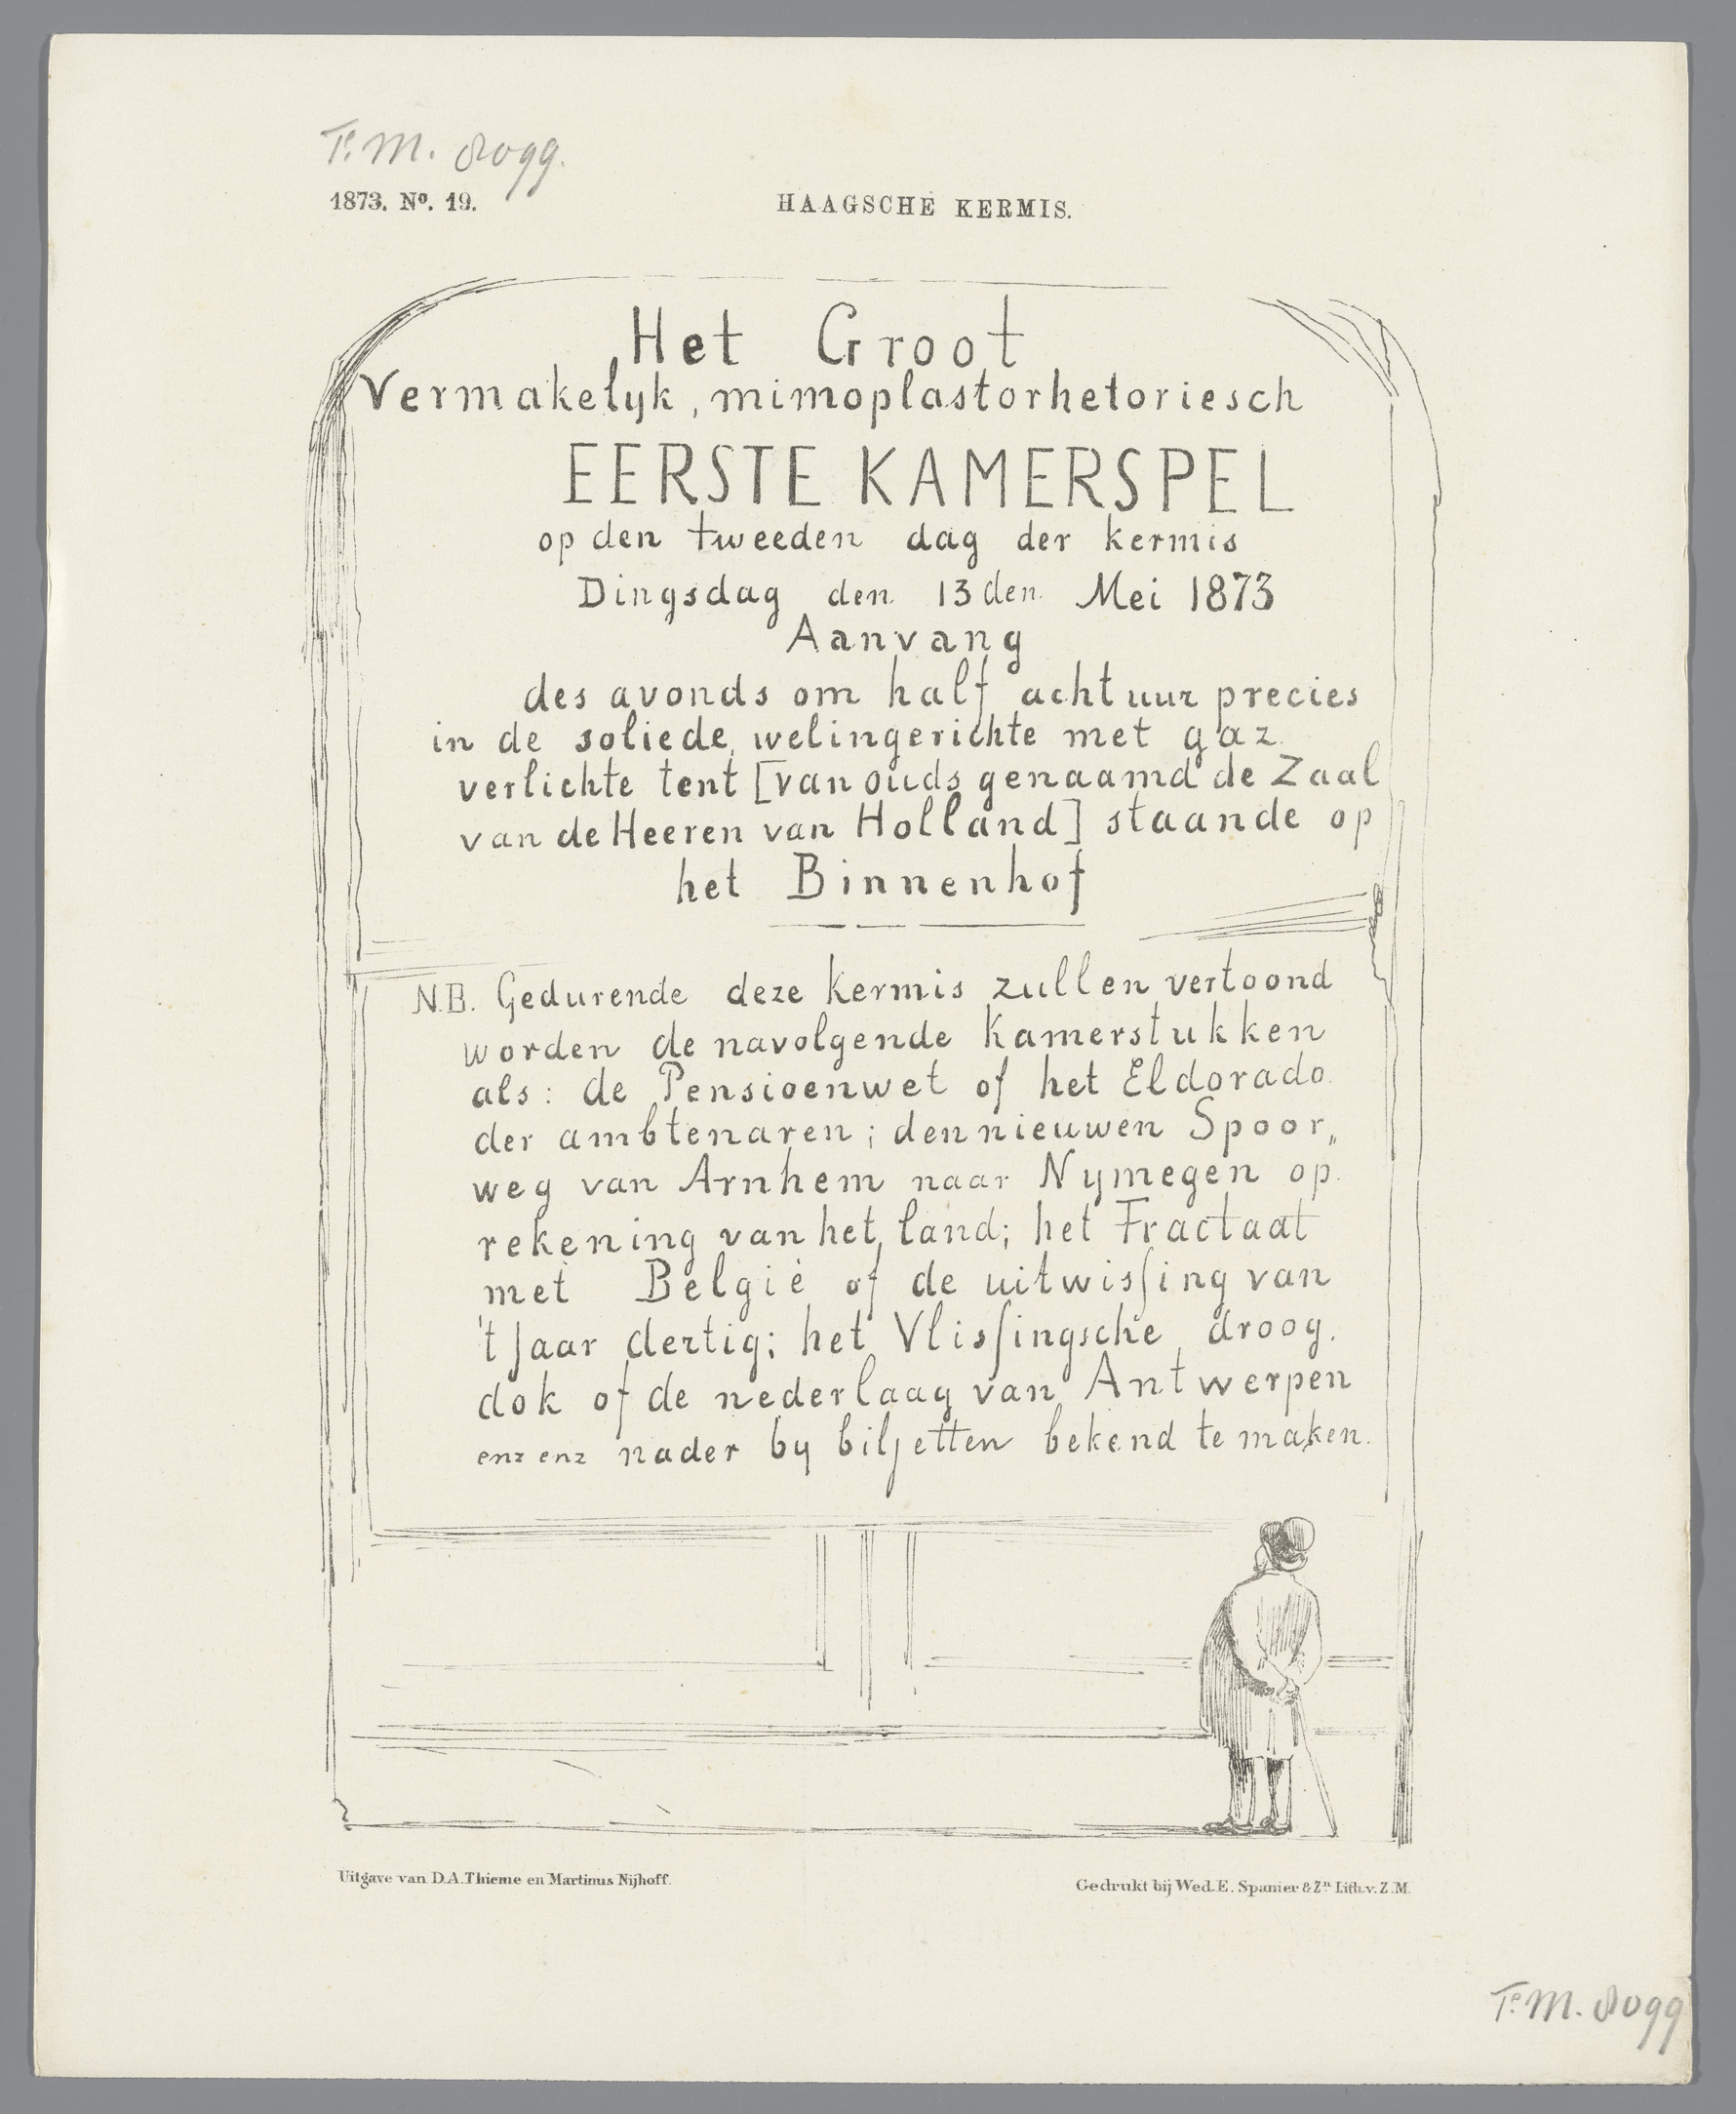 T.M. 8099.
1873. Nº. 19.
HAAGSCHE KERMIS.
Het Groot
Vermakelyk, mimoplastorhetoriesch
EERSTE KAMERSPEL
op den tweeden dag der kermis
Dingsdag den 13den Mei 1873
Aanvang
des avonds om half acht uur precies
in de soliede, welingerichte met gaz
verlichte tent [van ouds genaamd de Zaal
van de Heeren van Holland] staande op
het Binnenhof
N.B. Gedurende deze kermis zullen vertoond
worden de navolgende Kamerstukken
als: de Pensioenwet of het Eldorado
der ambtenaren; den nieuwen Spoor„
weg van Arnhem naar Nymegen op
rekening van het land; het Tractaat
met België of de uitwisſing van
't Jaar dertig; het Vlisſingsche droog.
dok of de nederlaag van Antwerpen
enz enz nader by biljetten bekend te maken.
Uitgave van D.A. Thieme en Martinus Nijhoff.
Gedrukt bij Wed. E. Spanier & Zn. Lith. v. Z.M.
T.M. 8099